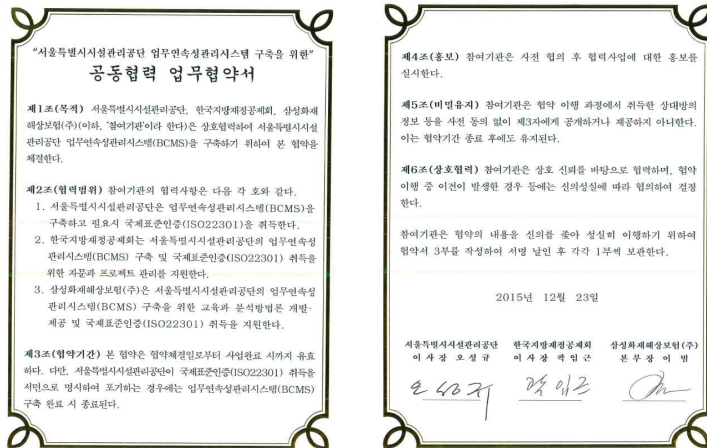 "서울특별시시설관리공단 업무연속성관리시스템 구축을 위한"
공동협력 업무협약서
제1조(목적) 서울특별시시설관리공단, 한국지방재정공제회, 삼성화재
해상보험(주)(이하, '참여기관'이라 한다)은 상호협력하여 서울특별시시설
관리공단 업무연속성관리시스템(BCMS)을 구축하기 위하여 본 협약을
체결한다.
제2조(협력범위) 참여기관의 협력사항은 다음 각 호와 같다.
1. 서울특별시시설관리공단은 업무연속성관리시스템(BCMS)을
구축하고 필요시 국제표준인증(ISO22301)을 취득한다.
2. 한국지방재정공제회는 서울특별시시설관리공단의 업무연속성
관리시스템(BCMS) 구축 및 국제표준인증(ISO22301) 취득을
위한 자문과 프로젝트 관리를 지원한다.
3. 삼성화재해상보험(주)은 서울특별시시설관리공단의 업무연속성
관리시스템(BCMS) 구축을 위한 교육과 분석방법론 개발·
제공 및 국제표준인증(ISO22301) 취득을 지원한다.
제3조(협약기간) 본 협약은 협약체결일로부터 사업완료 시까지 유효
하다. 다만, 서울특별시시설관리공단이 국제표준인증(ISO22301) 취득을
서면으로 명시하여 포기하는 경우에는 업무연속성관리시스템(BCMS)
구축 완료 시 종료된다.
제4조(홍보) 참여기관은 사전 협의 후 협력사업에 대한 홍보를
실시한다.
제5조(비밀유지) 참여기관은 협약 이행 과정에서 취득한 상대방의
정보 등을 사전 동의 없이 제3자에게 공개하거나 제공하지 아니한다.
이는 협약기간 종료 후에도 유지된다.
제6조(상호협력) 참여기관은 상호 신뢰를 바탕으로 협력하며, 협약
이행 중 이견이 발생한 경우 등에는 신의성실에 따라 협의하여 결정
한다.
참여기관은 협약의 내용을 신의를 좇아 성실히 이행하기 위하여
협약서 3부를 작성하여 서명 날인 후 각각 1부씩 보관한다.
2015년 12월 23일
서울특별시시설관리공단 한국지방재정공제회 삼성화재해상보험(주)
이 사 장 오 성 규 이 사 장 곽 임 근 본 부 장 이 범
오성규 곽임근